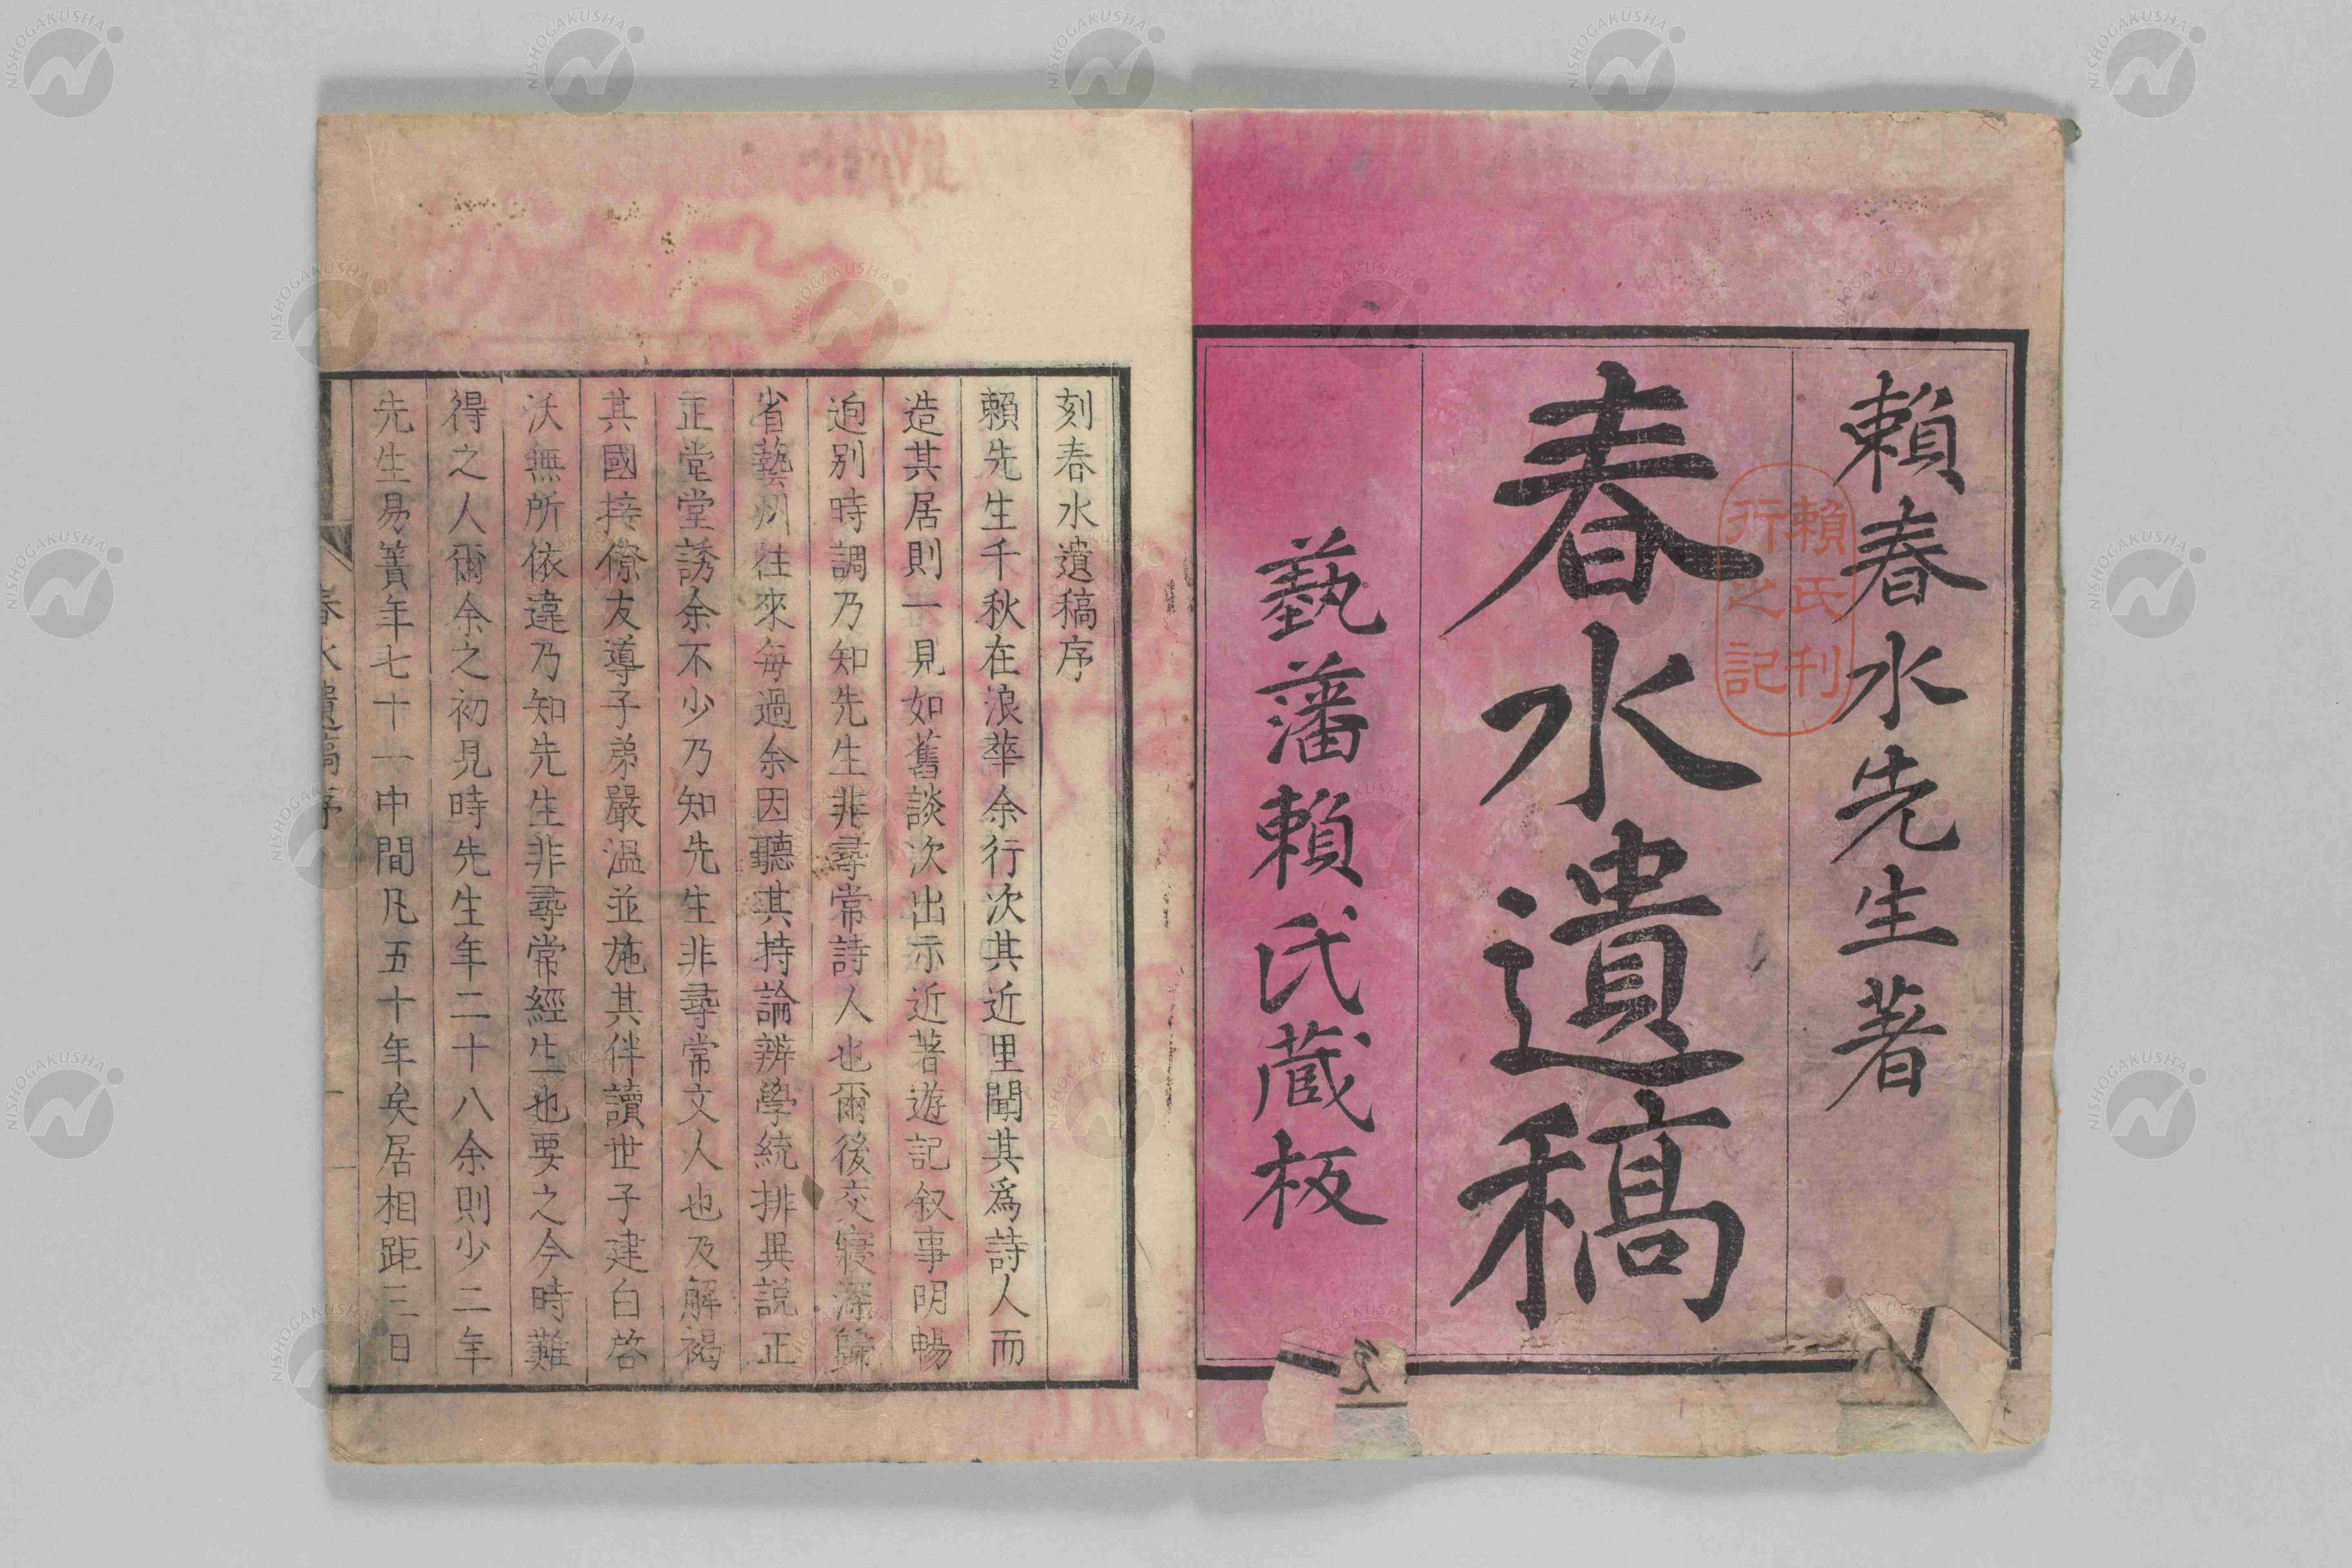 賴春水先生著
春水遺稿
藝藩賴氏蔵板
賴氏刊
行之記
刻春水遺稿序
賴先生千秋在浪華余行次其近里聞其為詩人而
造其居則一見如舊談次出示近著遊記叙事明暢
逈别時調乃知先生非尋常詩人也爾後交寢深歸
省藝州往來每過余因聽其持論辨學統排異説正
正堂堂誘余不少乃知先生非尋常文人也及解褐
其國接僚友導子弟嚴温並施其伴讀世子建白啓
沃無所依違乃知先生非尋常經生也要之今時難
得之人爾余之初見時先生年二十八余則少二年
先生易簀年七十一中間凡五十年矣居相距三日
春水遺稿序
NISHOGAKUSHA